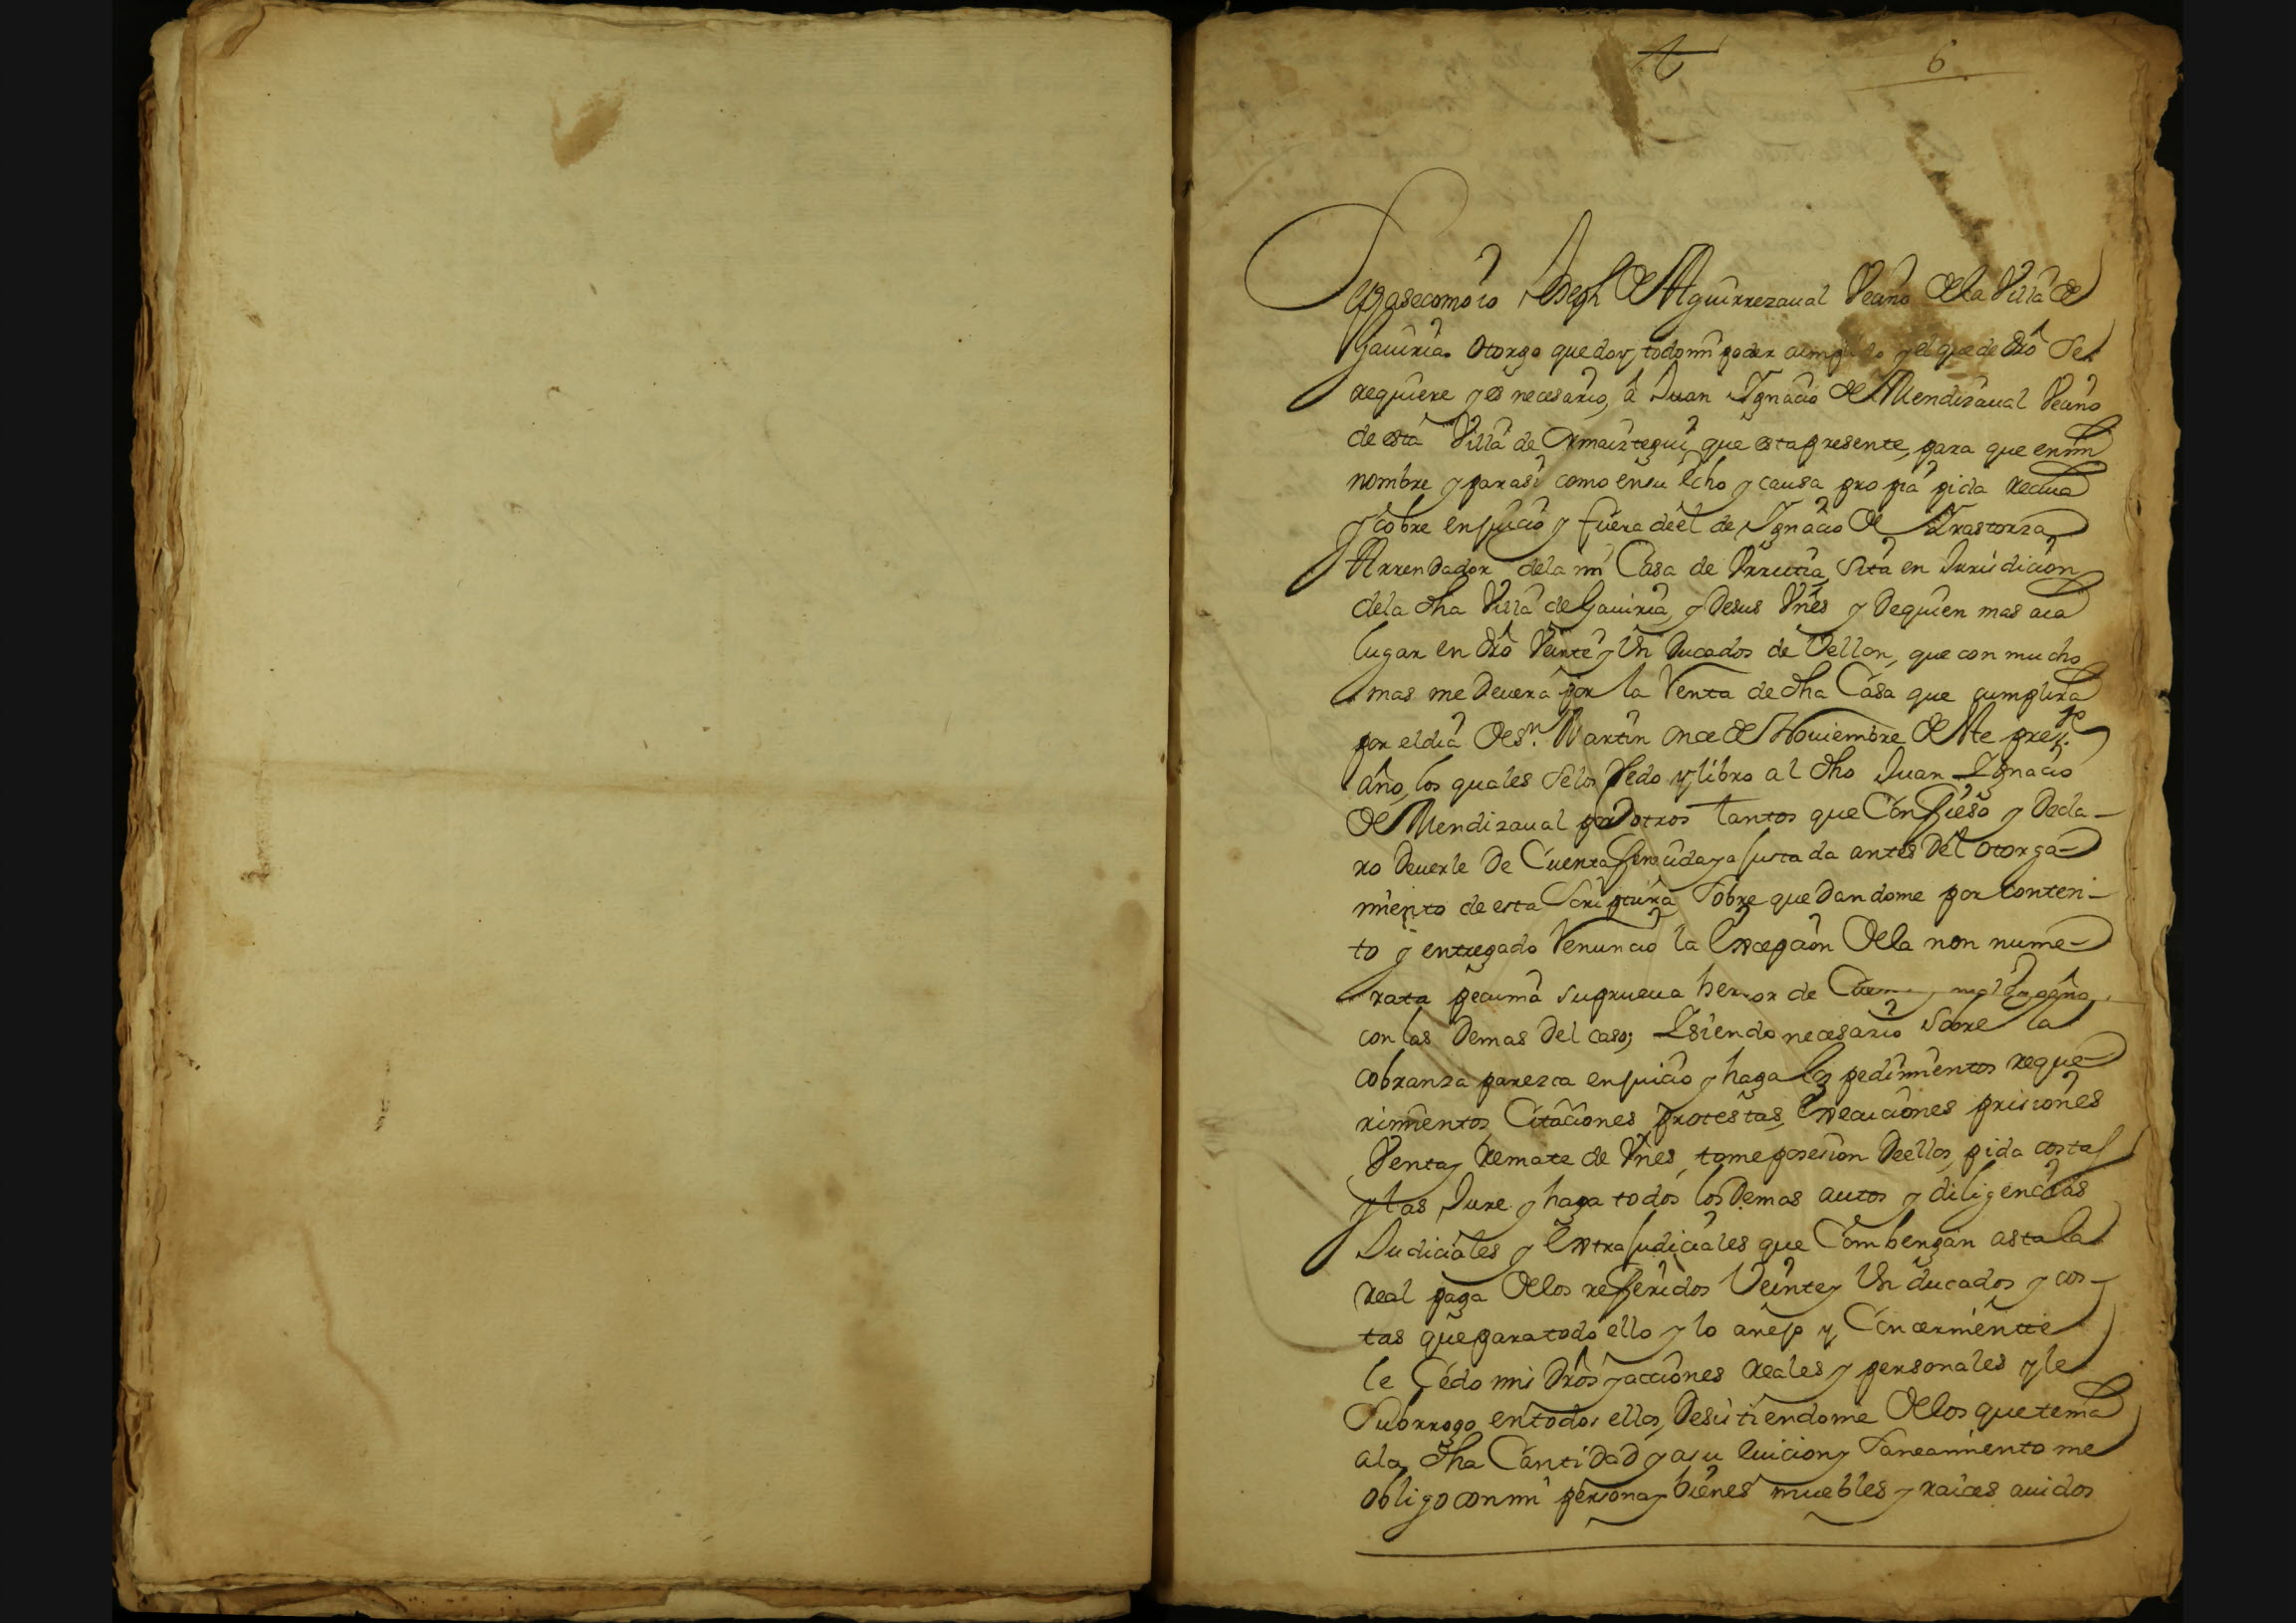 6
Sepasecomo io Joseph de Aguirrezaual Veciño de la Villa de
Gauiria. Otorgo que doy, todo mi poder cumplido y el que de dró Se
requiere y es necesario, â Juan Ygnacio de Mendizaual Veciño
de esta Villa de Ormaiztegui, que esta presente, para que en mi
nombre y para si como en su fcho y causa propia pida reciua
y cobre en juicio y fuera de el de Ygnacio de Arastorza
Arrendador dela mi Casa de Vrrutia, Sita en Jurisdicion
dela dha Villa de Gauiria, y de sus Vnes y de quien mas aia
lugar en dró Veinte y Vn Ducados de Vellon, que con mucho
mas me deuera por la Renta de dha Casa que cumplira
por el dia de Sn. Martin once de Nouiembre de este preste
año, los quales Se los Zedo y libro al dho Juan Ygnacio
de Mendizaual por otros tantos que Confieso y Decla-
ro deuerle de Cuenta fenecida y ajustada antes del otorga-
miento de esta Scriptura Sobre que dandome por Conten-
to y entregado Renuncio la Excepcion de la non nume-
rata pecunia su prueua herror de Cuenta, mal Engaño,
con las Demas del caso; Y siendo necesario Sobre la
cobranza parezca en juicio y haga los pedimientos reque-
rimientos, Citaciones, protestas, Execuciones prisiones
Venta y Remate de Vnes, tome posesion de ellos, pida costas
y las Jure y haga todos los Demas autos y diligencias
Judiciales y Extrajudiciales que Combengan asta la
real paga de los referidos Veinte y Vn ducados y cos-
tas que para todo ello y lo anejo y Concerniente
le Cedo mis drôs y acciones reales y personales y le
Subrrogo en todos ellos, Desistiendome de los que tenia
ala dha Cantidad y a su euicion y Saneamiento me
obligo con mi persona y bienes muebles y raices auidos